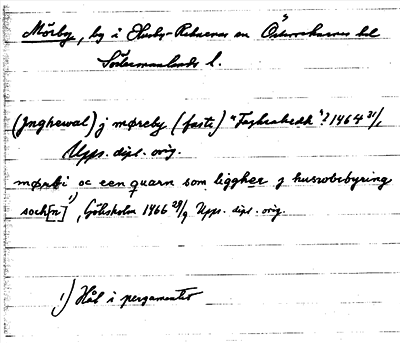 Mörby, by i Husby-Rekarnes sn Österrekarnes hd
Södermanlands l.
(Jnghewal) j møreby (faste) "Fogbrahedh"? 1464 31/1
Upps. dipl. orig.
mørbi oc een quarn som liggher j husrobobyring
sock[n] 1), Göksholm 1466 29/9 Upps. dipl. orig.
1) Hål i pergamentet